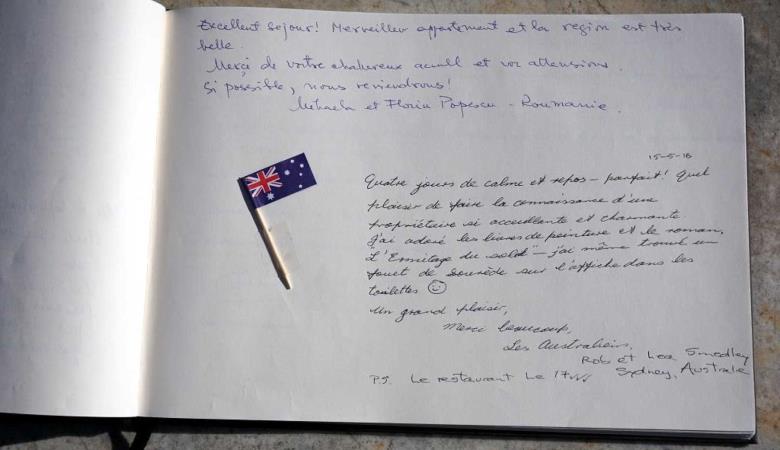 Excellent sejour! Merveilleux appartement et la region est très
belle.
Merçi de votre chaleureux acuill et vos attensions.
Si possible, nous reviendrons!
Mihaela et Florin Popescu - Roumanie.
15-5-18
Quatre jours de calme et repos - parfait! Quel
plaisir de faire la connaissance d'une
propriétaire si accueillante et charmante.
J'ai adoré les livres de peinture et le roman,
"L'Ermitage du soleil" - j'ai même trouvé un
jouet de sur l'affiche dans les
toilettes
Un grand plaisir,
Merci beaucoup,
Les Australiens,
Rob et Lea Smedley
Sydney, Australie
P.S. Le restaurant Le 17